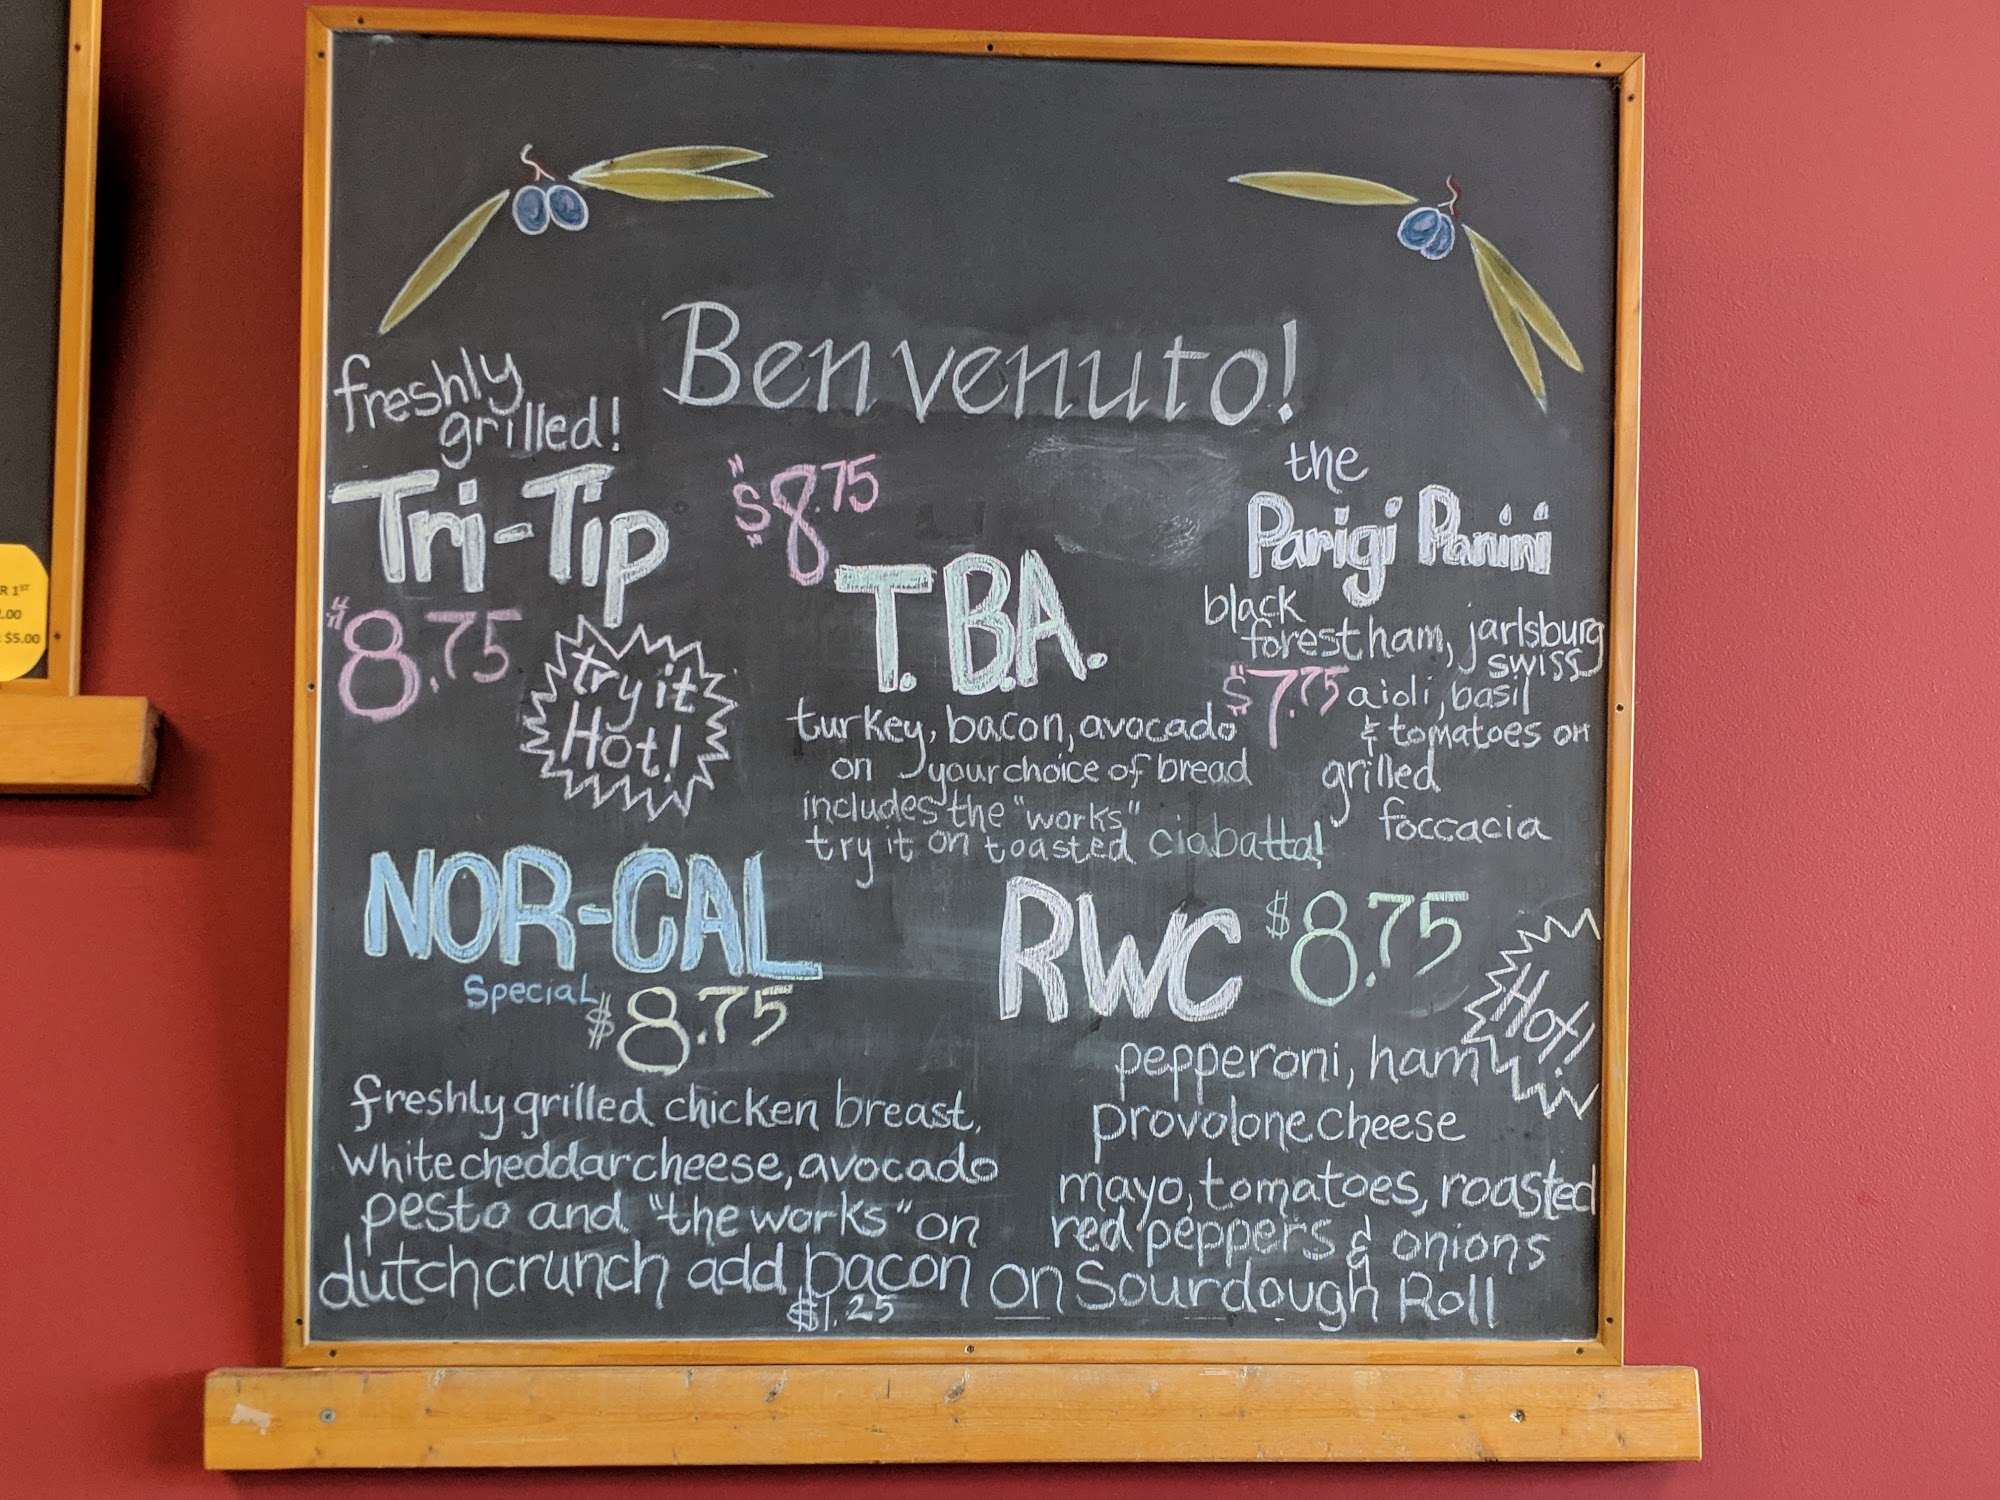 Benvenuto!
freshly
grilled!
Tri-Tip
$8.75
try it
Hot!
$8.75
T.B.A.
turkey, bacon, avocado
on your choice of bread
includes the "works"
try it on toasted ciabatta!
the
Parigi Panini
black
forest ham, jarlsburg
swiss
$7.75 aioli, basil
& tomatoes on
grilled
foccacia
NOR-CAL
Special
$8.75
freshly grilled chicken breast,
white cheddar cheese, avocado
pesto and "the works" on
dutch crunch add bacon
$1.25
RWC $8.75
Hot!
pepperoni, ham
provolone cheese
mayo, tomatoes, roasted
red peppers & onions
on Sourdough Roll
R 1ST
.00
$5.00